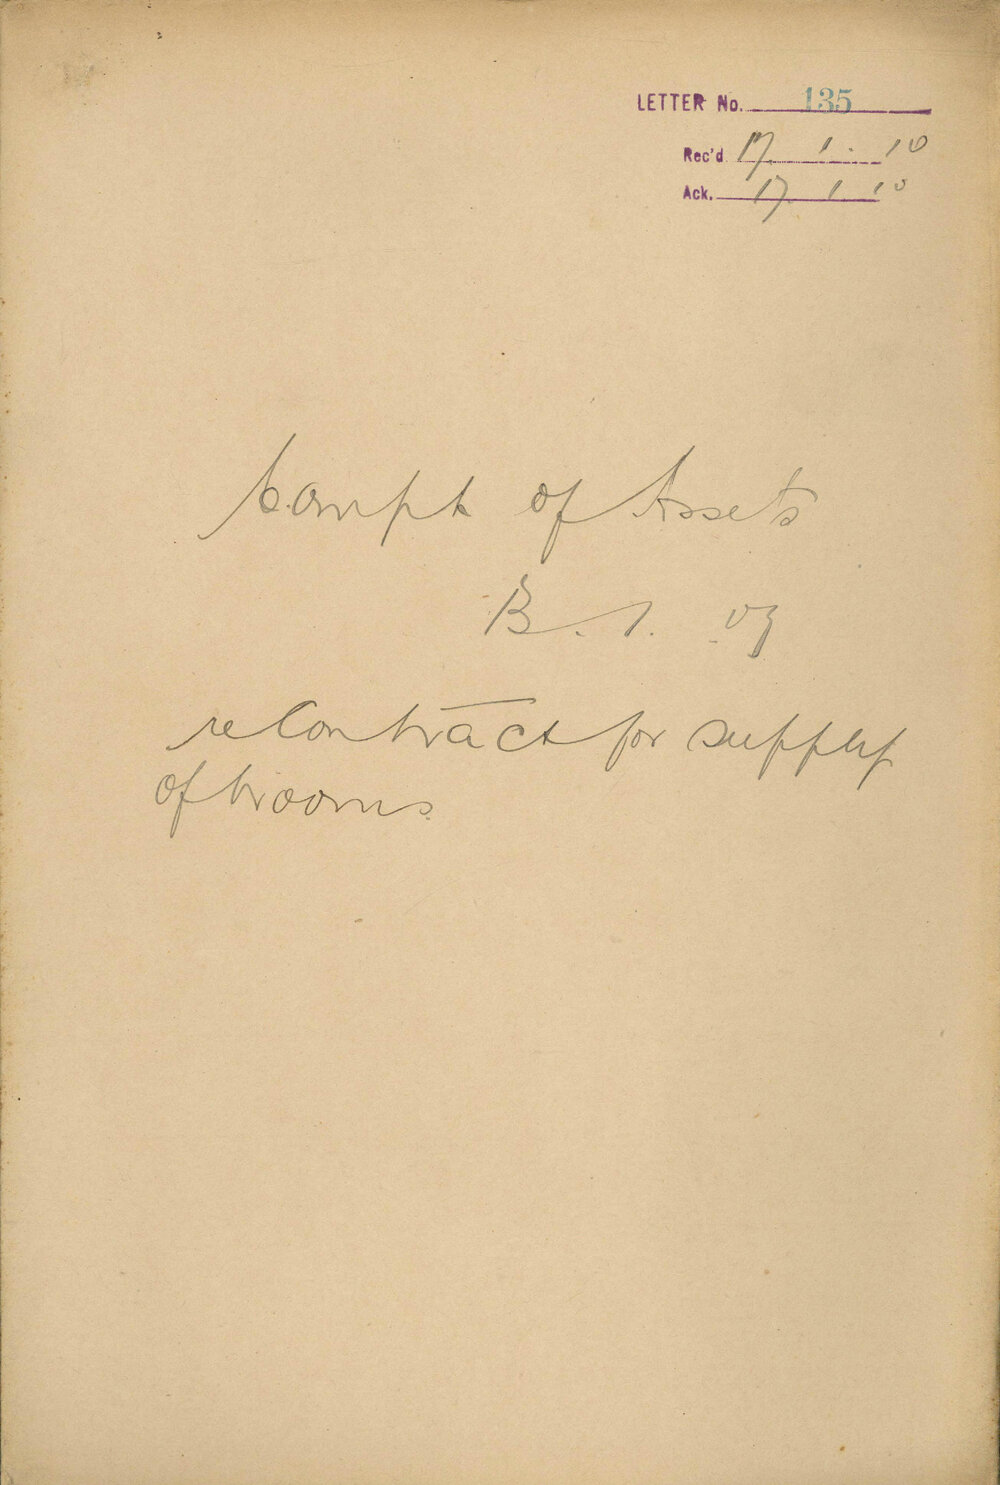 LETTER No. 135
Rec'd 17. 1. 10
Ack. 17. 1. 10
Compt of Assets
B. 1.
re Contract for supply
of brooms